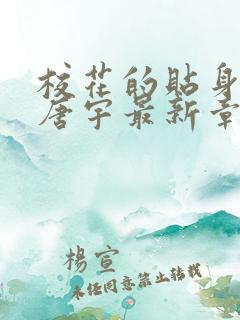 校花的贴身
唐宇最新章
杨宣
未经同意禁止转载